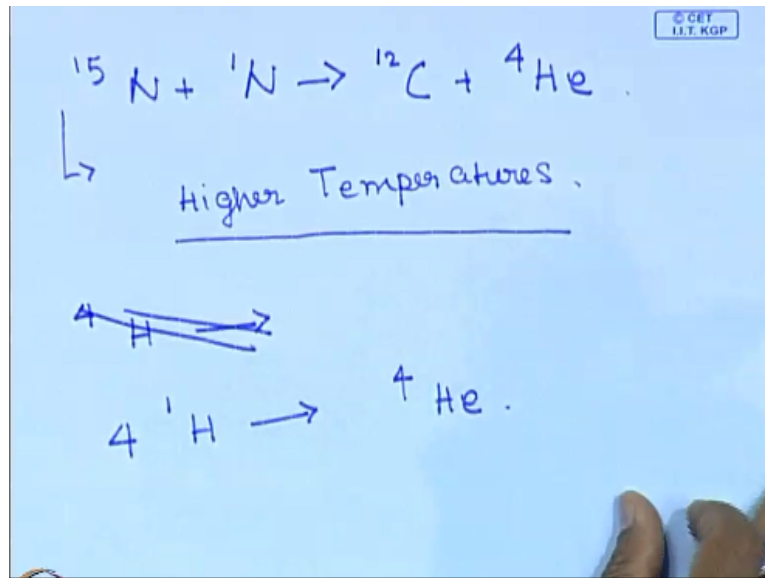 © CET
I.I.T. KGP
¹⁵N + ¹N → ¹²C + ⁴He.
Higher Temperatures.
4 H →
4 ¹H → ⁴He.